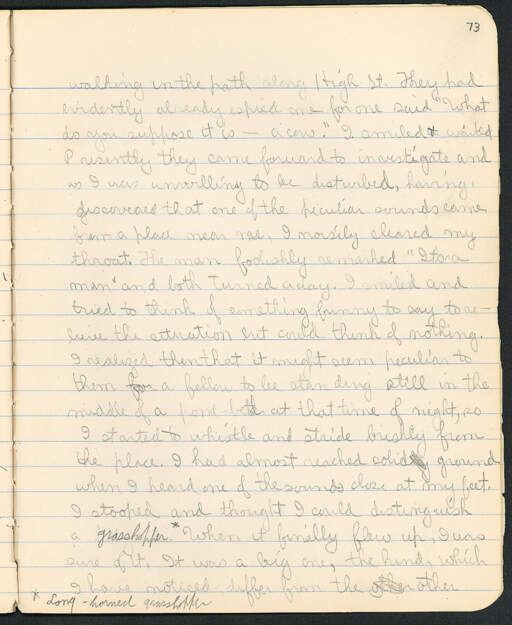 73
walking in the path along High St. They had
evidently already espied me for one said "What
do you suppose it is — a cow." I smiled & waited
Presently they came forward to investigate and
as I was unwilling to be disturbed, having
discovered that one of the peculiar sounds came
from a place near me, I noisily cleared my
throat. The man foolishly remarked "Its a
man" and both turned away. I smiled and
tried to think of something funny to say to re-
lieve the situation but could think of nothing.
I realized then that it might seem peculiar to
them for a fellow to be standing still in the
middle of a pond-bed at that time of night, so
I started to whistle and stride briskly from
the place. I had almost reached solid ground
when I heard one of the sounds close at my feet.
I stooped and thought I could distinguish
a grasshopper.* When it finally flew up, I was
sure of it. It was a big one, the kind which
I have noticed differ from the other
* Long-horned grasshopper